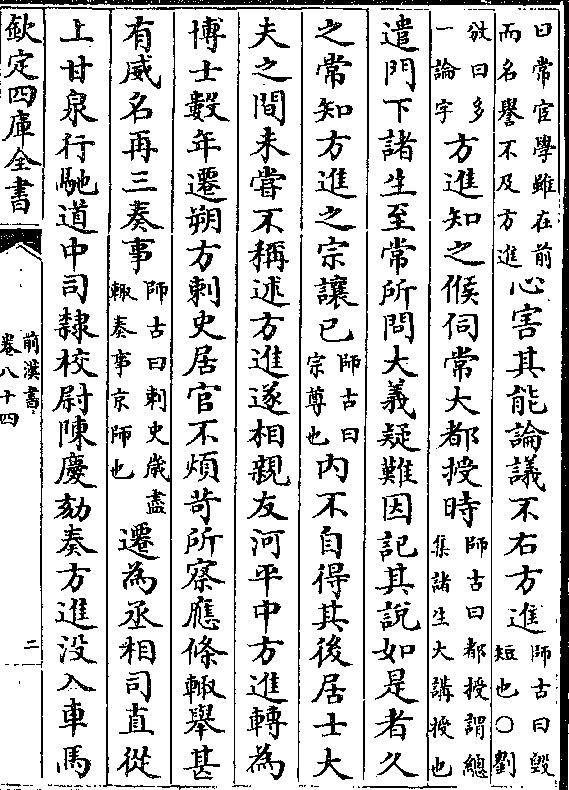 曰常宦學雖在前
而名譽不及方進
心害其能論議不右方進
師古曰毀
短也〇劉
攽曰多
一論字
方進知之候伺常大都授時
師古曰都授謂總
集諸生大講授也
遣門下諸生至常所問大義疑難因記其說如是者久
之常知方進之宗讓已
師古曰
宗尊也
內不自得其後居士大
夫之間未嘗不稱述方進遂相親友河平中方進轉為
博士數年遷朔方刺史居官不煩苛所察應條輒舉甚
有威名再三奏事
師古曰刺史歲盡
輒奏事京師也
遷為丞相司直從
上甘泉行馳道中司隸校尉陳慶劾奏方進没入車馬
欽定四庫全書
前漢書
卷八十四
二